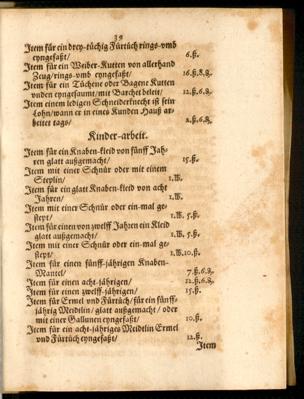 39
Item für ein drey-tüchig Fürtuch rings-vmb
eyngefaßt/ 6.ß.
Item für ein Weiber-Kutten von allerhand
Zeug/rings-vmb eyngefaßt/ 16.ß.8.₰.
Item für ein Tüchene oder Bagene Kutten
vnden eyngesaumt/mit Barchet beleit/ 12.ß.6.₰.
Item einem ledigen Schneiderknecht ist sein
Lohn/wann er in eines Kunden Hauß ar-
beitet tags/ 2.ß.6.₰.
Kinder-arbeit.
Item für ein Knaben-kleid von fünff Jah-
ren glatt außgemacht/ 15.ß.
Item mit einer Schnür oder mit einem
Steplin/ 1.W.
Item für ein glatt Knaben-kleid von acht
Jahren/ 1.W.
Item mit einer Schnür oder ein-mal ge-
stept/ 1.W. 5.ß.
Item für einen von zwelff Jahren ein Kleid
glatt außgemacht/ 1.W. 5.ß.
Item mit einer Schnür oder ein-mal ge-
stept/ 1.W.10.ß.
Item für einen fünff-jährigen Knaben-
Mantel/ 7.ß.6.₰.
Item für einen acht-jährigen/ 12.ß.6.₰.
Item für einen zwelff-jährigen/ 15.ß.
Item für Ermel vnd Fürtuch/für ein fünff-
jährig Meidtlin/ glatt außgemacht / oder
mit einer Gallunen eyngefaßt/ 10.ß.
Item für ein acht-jähriges Meidtlin Ermel
vnd Fürtuch eyngefaßt/ 12.ß.
Item